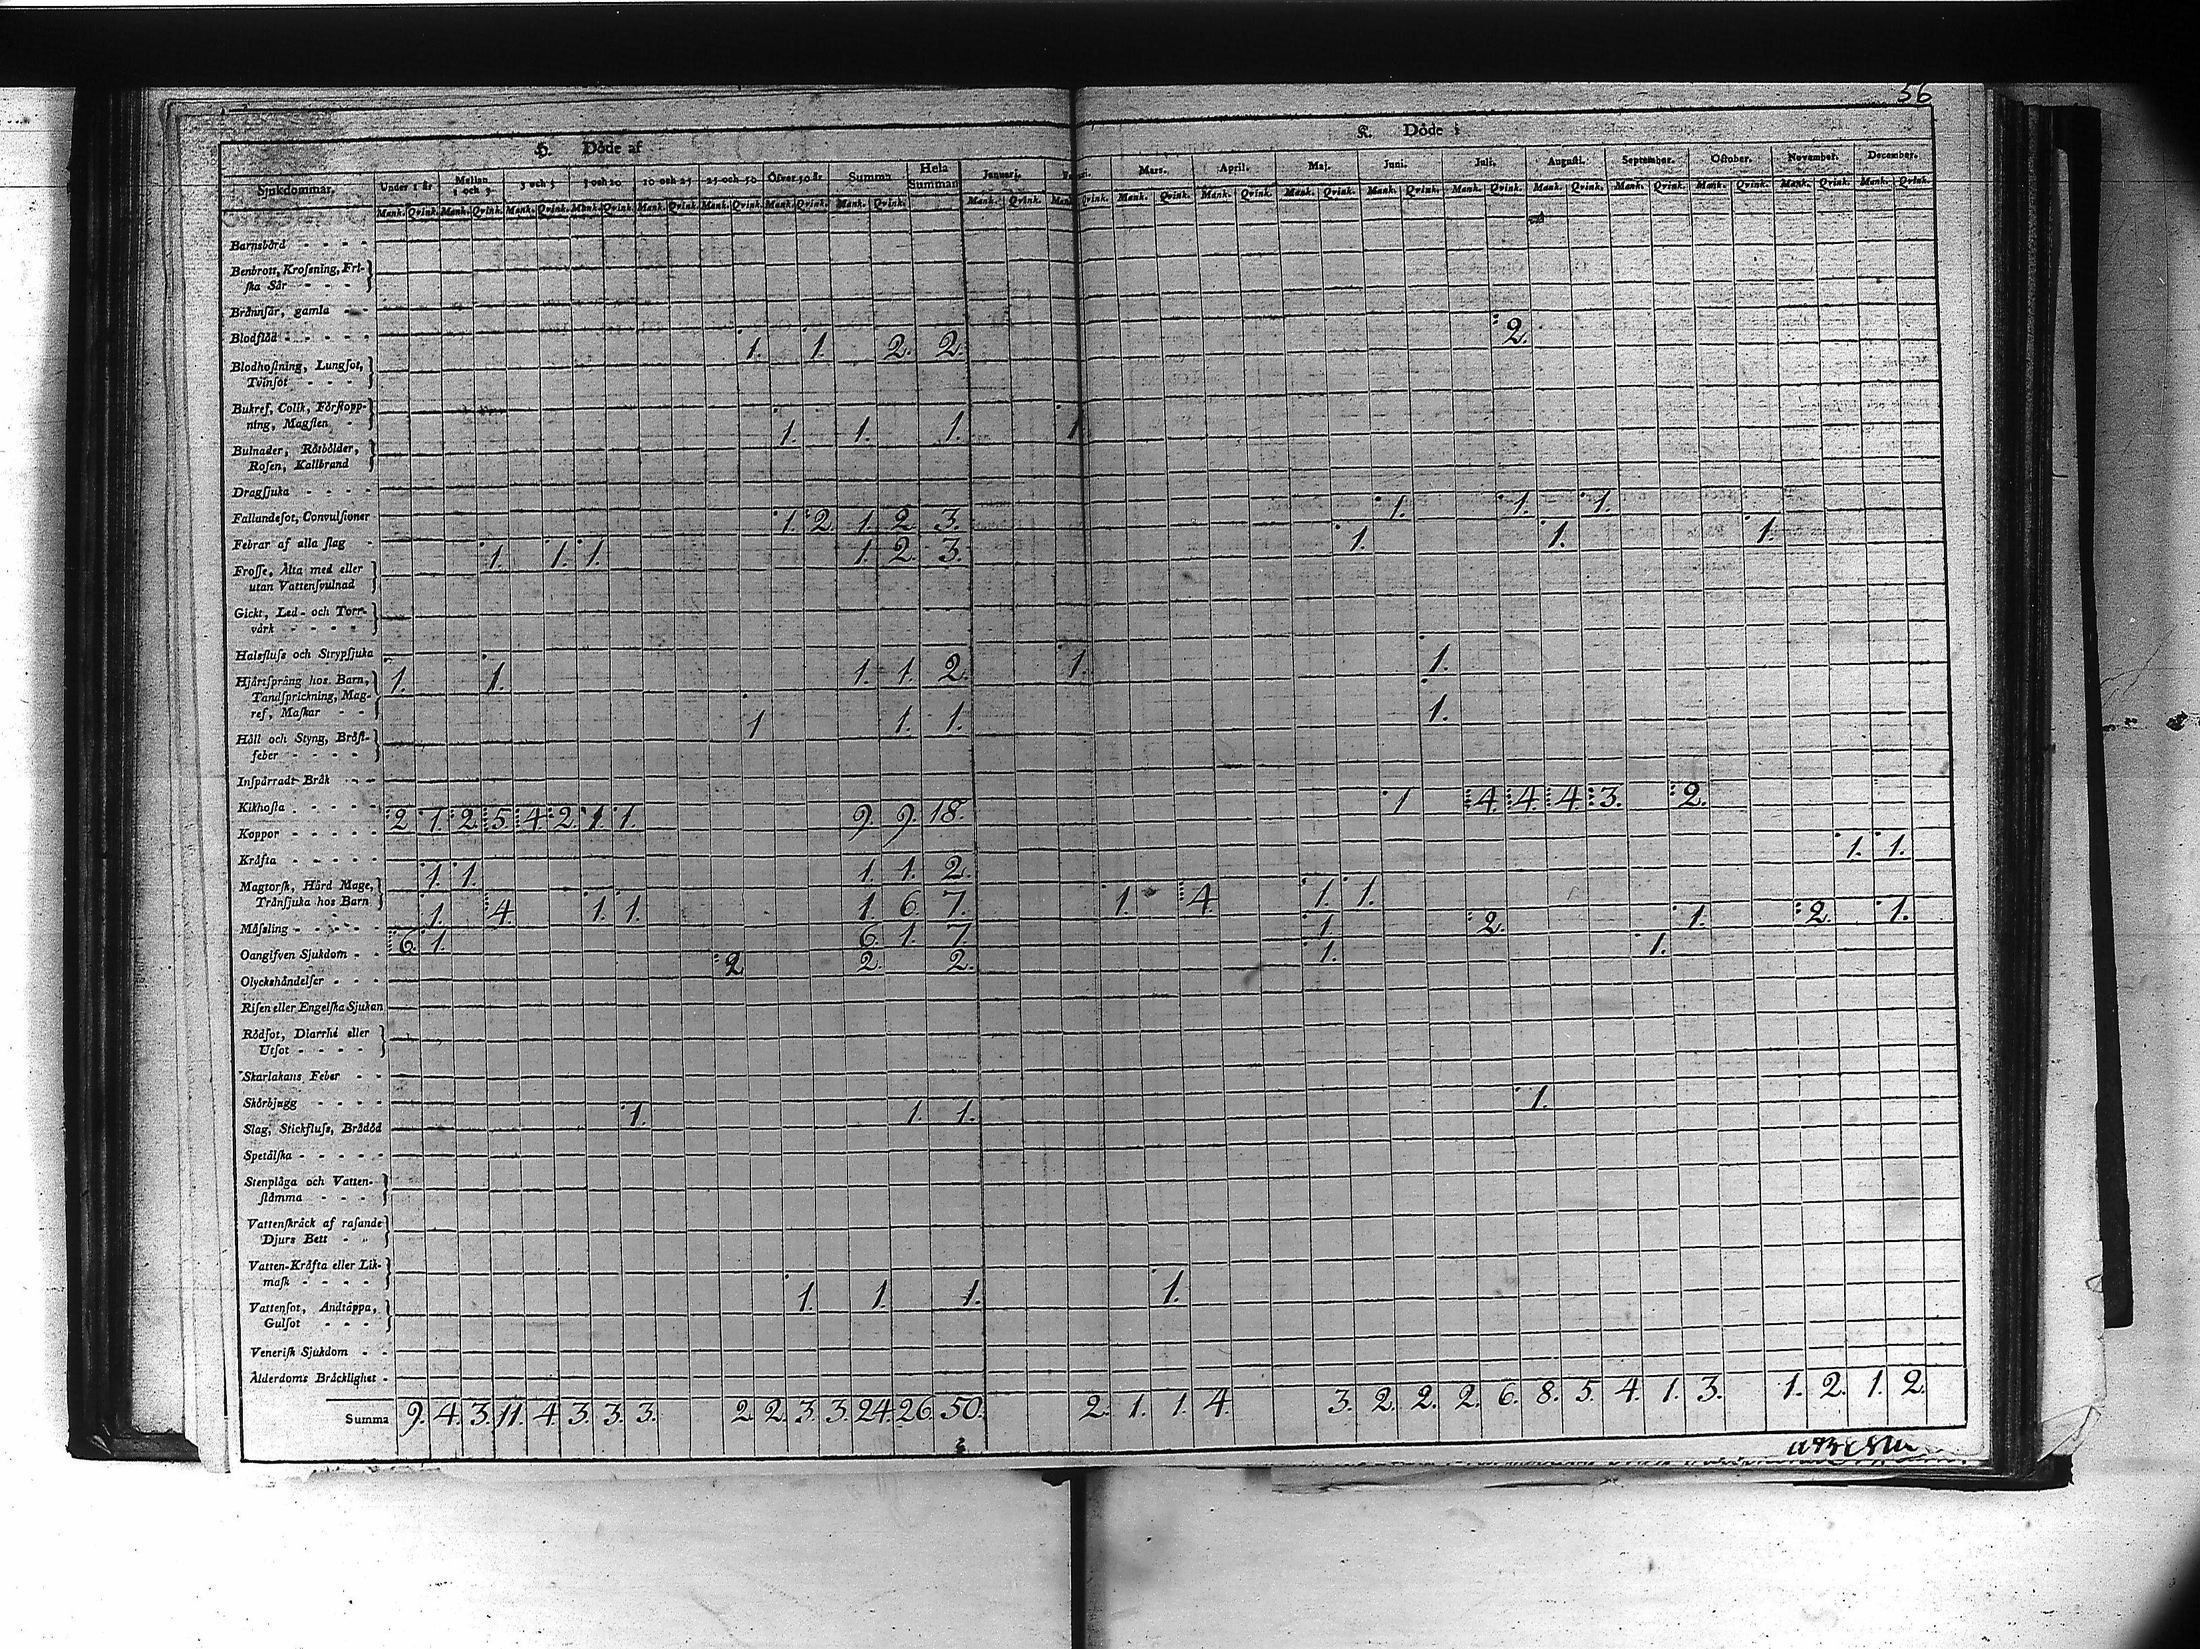 56
H. Döde af
K. Döde i
Sjukdommar. Under 1 år Mellan 1 och 3 3 och 5 5 och 10 10 och 25 25 och 50 Öfver 50 år Summa Hela Summan Januarj. Mars. April. Maj. Juni. Juli. Augusti. September. October. November. December.
Mank. Qvink. Mank. Qvink. Mank. Qvink. Mank. Qvink. Mank. Qvink. Mank. Qvink. Mank. Qvink. Mank. Qvink. Mank. Qvink. Mank. Qvink. Mank. Qvink. Mank. Qvink. Mank. Qvink. Mank. Qvink. Mank. Qvink. Mank. Qvink. Mank. Qvink. Mank. Qvink. Mank. Qvink. Mank. Qvink.
Barnsbörd
Benbrott, Krosſning, Fri-
ſka Sår
Brännſår, gamla
Blodflöd 1. 1. 2. 2 2.
Blodhoſtning, Lungſot,
Tvinſot
Bukref, Colik, Förſtopp-
ning, Magſten 1. 1. 1. 1
Bulnader, Rötbölder,
Roſen, Kallbrand
Dragſjuka
Fallandeſot, Convulſioner 1. 2 1. 2. 3. 1. 1. 1.
Febrar af alla ſlag 1. 1. 1. 1. 2. 3. 1. 1. 1.
Froſſe, Älta med eller
utan Vattenſvulnad
Gickt, Led- och Torr-
värk
Halsfluſs och Strypſjuka 1. 1. 1. 1. 2. 1. 1.
Hjärtſprång hos Barn,
Tandſprickning, Mag-
ref, Maſkar 1 1. 1. 1.
Håll och Styng, Bröſt-
feber
Inſpärradt Bråk
Kikhoſta 2. 1. 2. 5. 4. 2. 1. 1. 9. 9. 18. 1 4. 4. 4. 3. 2.
Koppor
Kräfta 1. 1. 1. 1. 2. 1. 1.
Magtorſk, Hård Mage,
Tränſjuka hos Barn 1. 4. 1. 1. 1. 6. 7. 1. 4. 1. 1.
Måſsling 6. 1. 6. 1. 7. 1. 2. 1. 2. 1.
Oangifven Sjukdom 2 2. 2. 1. 1.
Olyckshändelſer
Riſen eller Engelſka Sjukan
Rödſot, Diarrhé eller
Utſot
Skarlakans Feber
Skörbjugg 1. 1. 1. 1.
Slag, Stickfluſs, Brådöd
Spetälſka
Stenplåga och Vatten-
ſtämma
Vattenſkräck af raſande
Djurs Bett
Vatten-Kräfta eller Lik-
maſk 1. 1. 1. 1.
Vattenſot, Andtäppa,
Gulſot
Veneriſk Sjukdom
Ålderdoms Bräcklighet
Summa 9. 4. 3. 11. 4. 3. 3. 3. 2. 2. 3. 3. 24. 26. 50. 2. 1. 1. 4. 3. 2. 2. 2. 6. 8. 5. 4. 1. 3. 1. 2. 1. 2.